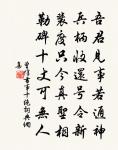 吾君見事若通神
兵柄收還號令新
裴度只今真聖相
勒碑十丈可無人